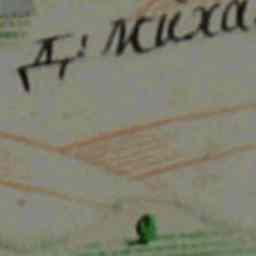 Д: Миха